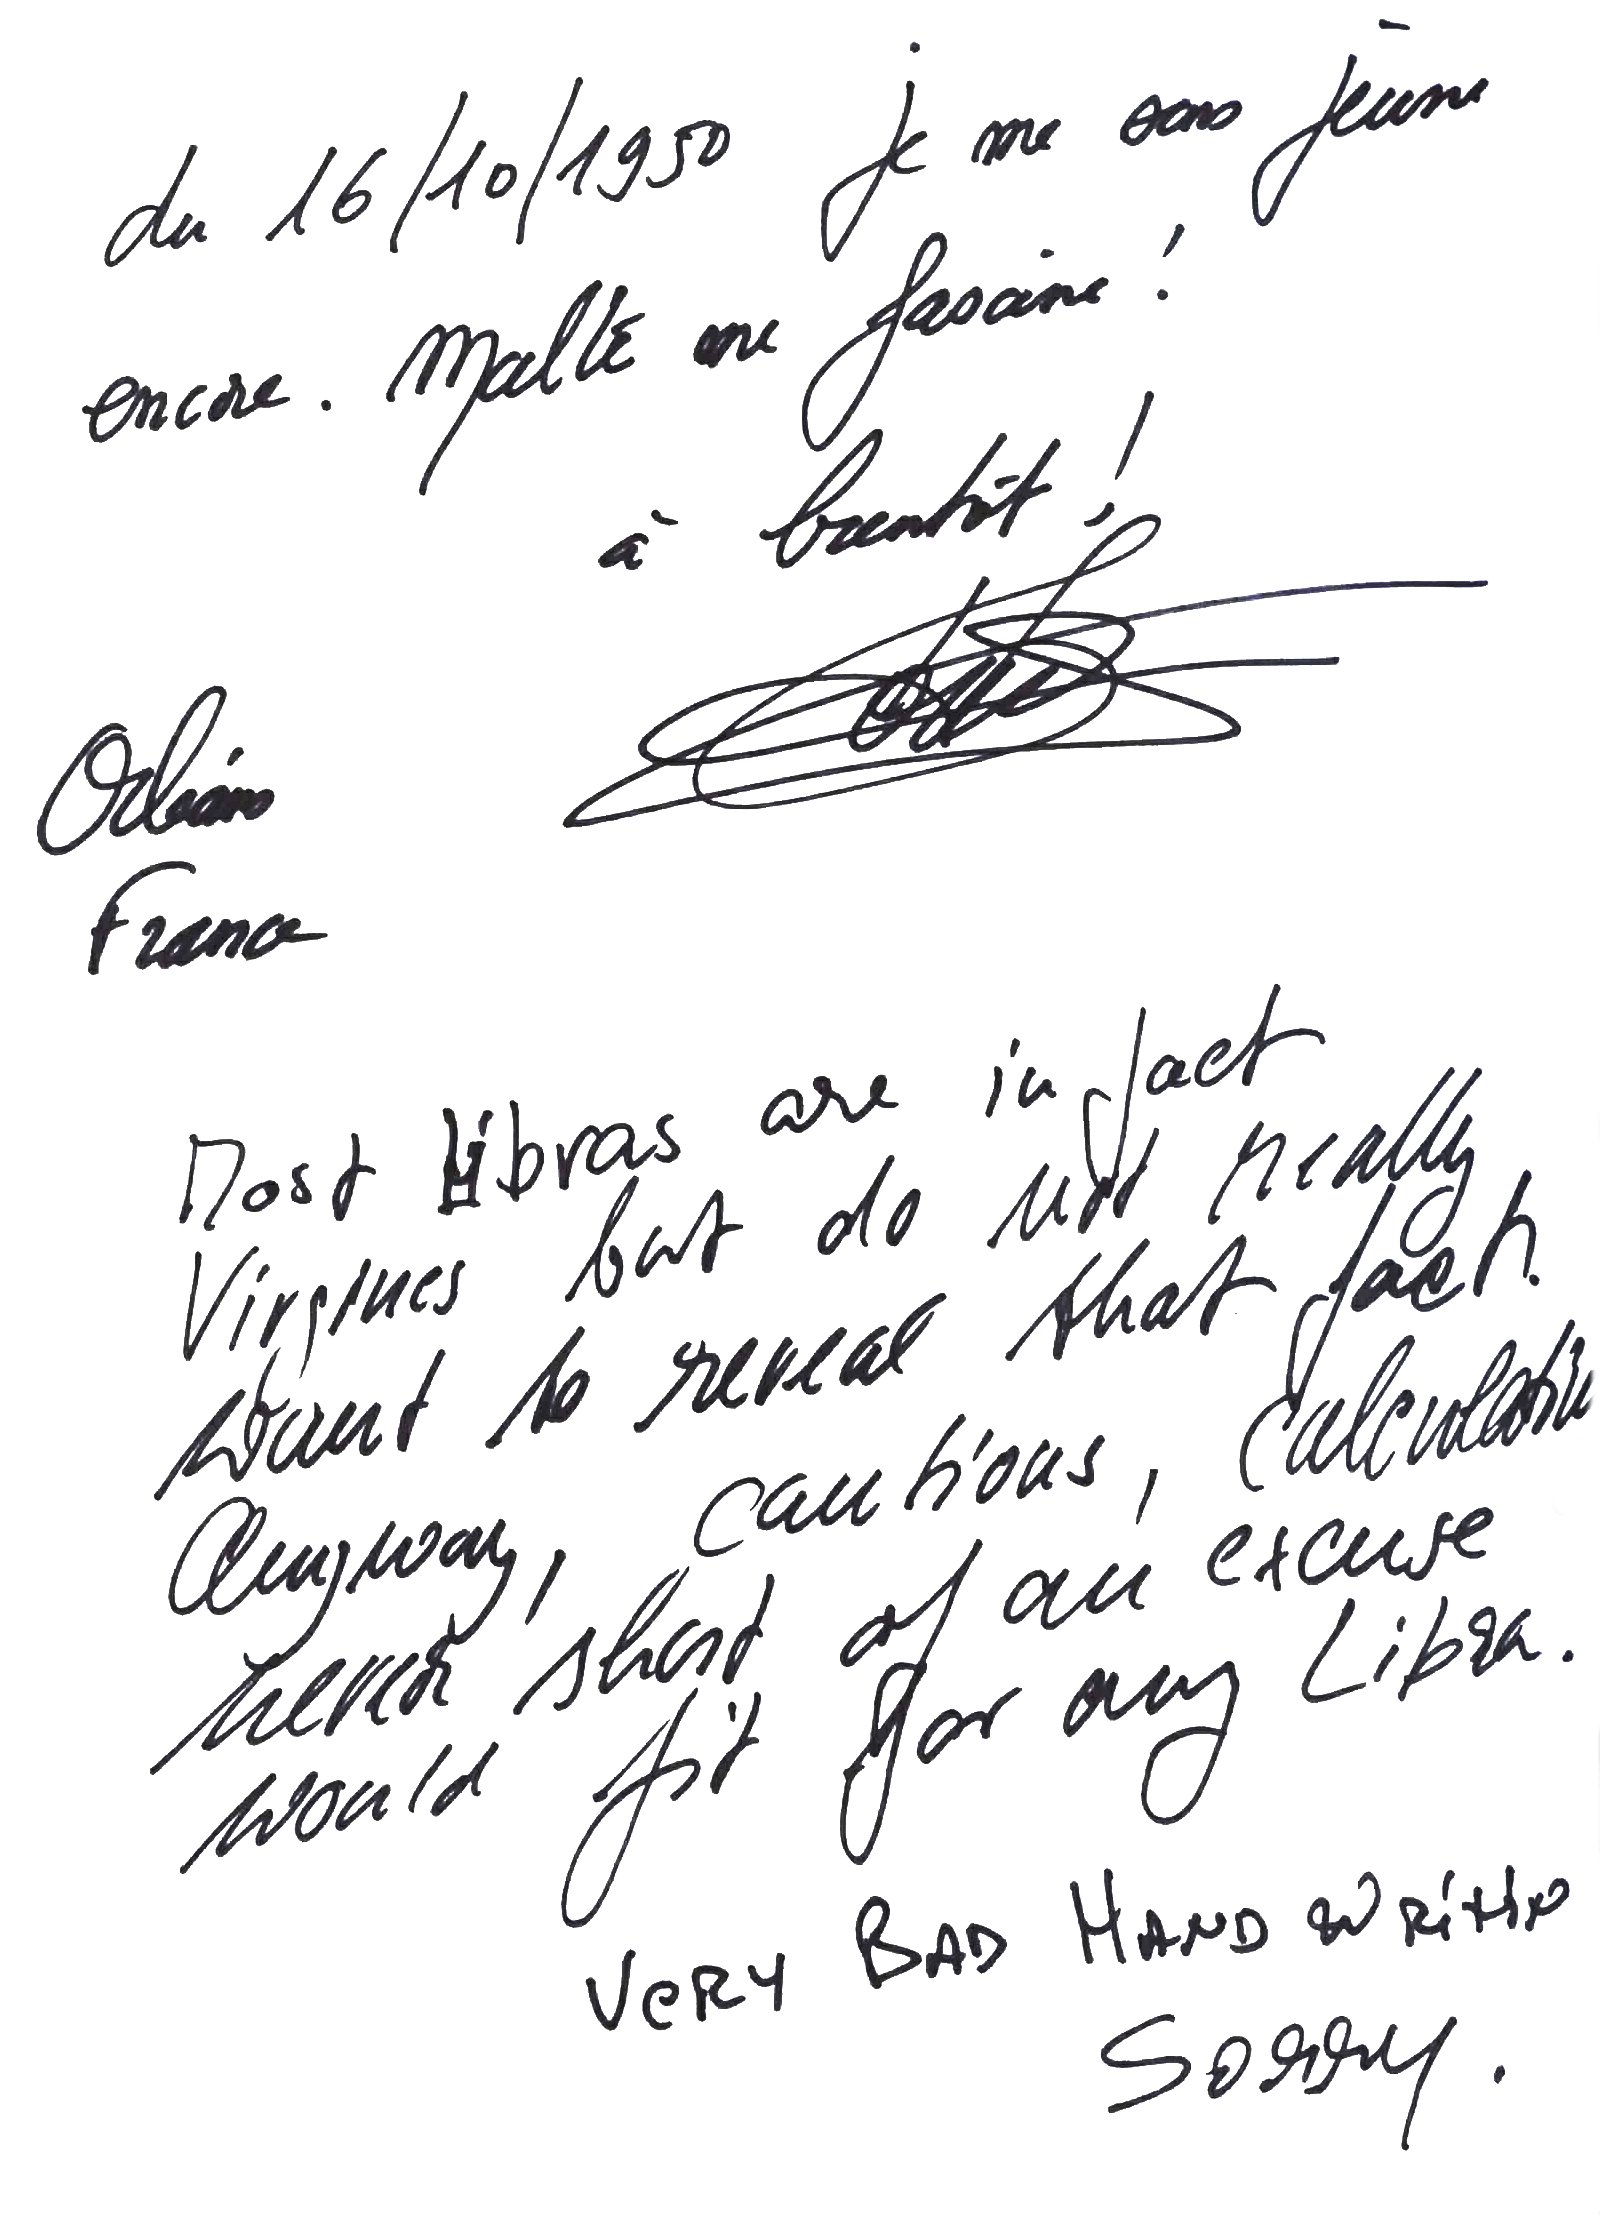 du 16/10/1950 je me sens jeune
encore. Malte me fascine !
à bientôt !
Orléans
France
Most Libras are in fact
Virgines but do not really
want to reveal that fact.
Anyway, cautious, calculatin
never short of an excuse
would fit for any Libra.
VERY BAD HAND WRITIN
SORRY.